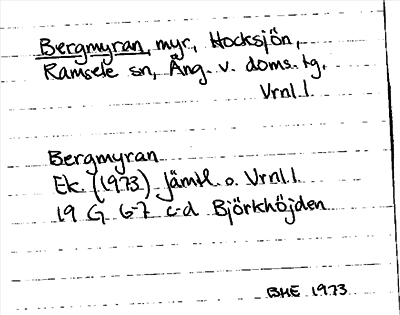 Bergmyran, myr, Hocksjön,
Ramsele sn, Ång. v. doms. tg.
Vrnl.l.
Bergmyran
Ek. (1973) Jämtl. o. Vrnl.l.
19 G 6-7 c-d Björkhöjden
BHE 1973